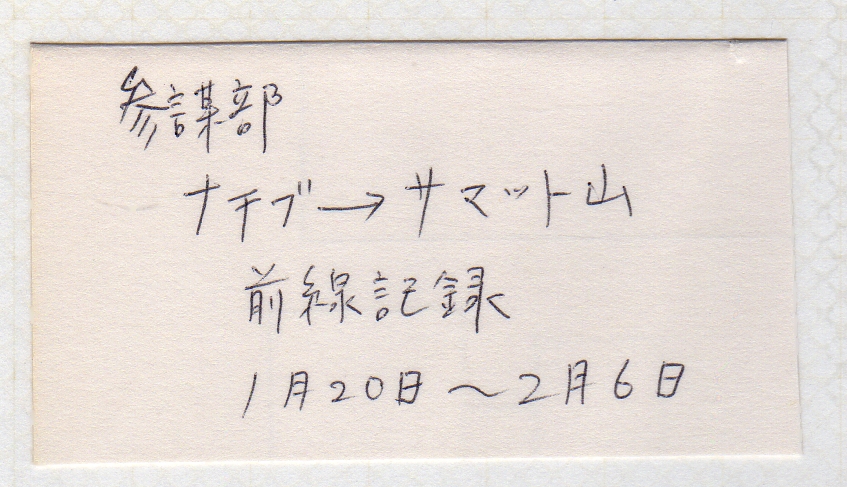 参謀部
ナチブ→サマット山
前線記録
1月20日～2月6日